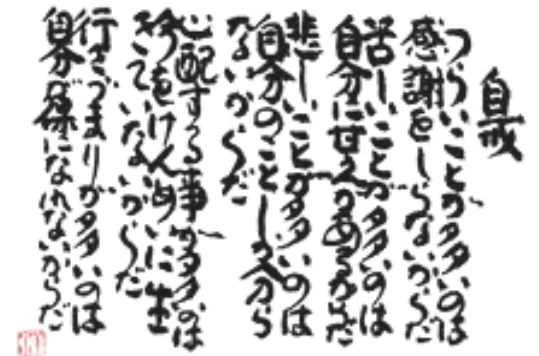 自戒
つらいことが多いのは
感謝をしらないからだ
苦しいことが多いのは
自分に甘えがあるからだ
悲しいことが多いのは
自分のことしか分ら
ないからだ
心配する事が多いのは
今をけんめいに生
きていないからだ
行きづまりが多いのは
自分が裸になれないからだ